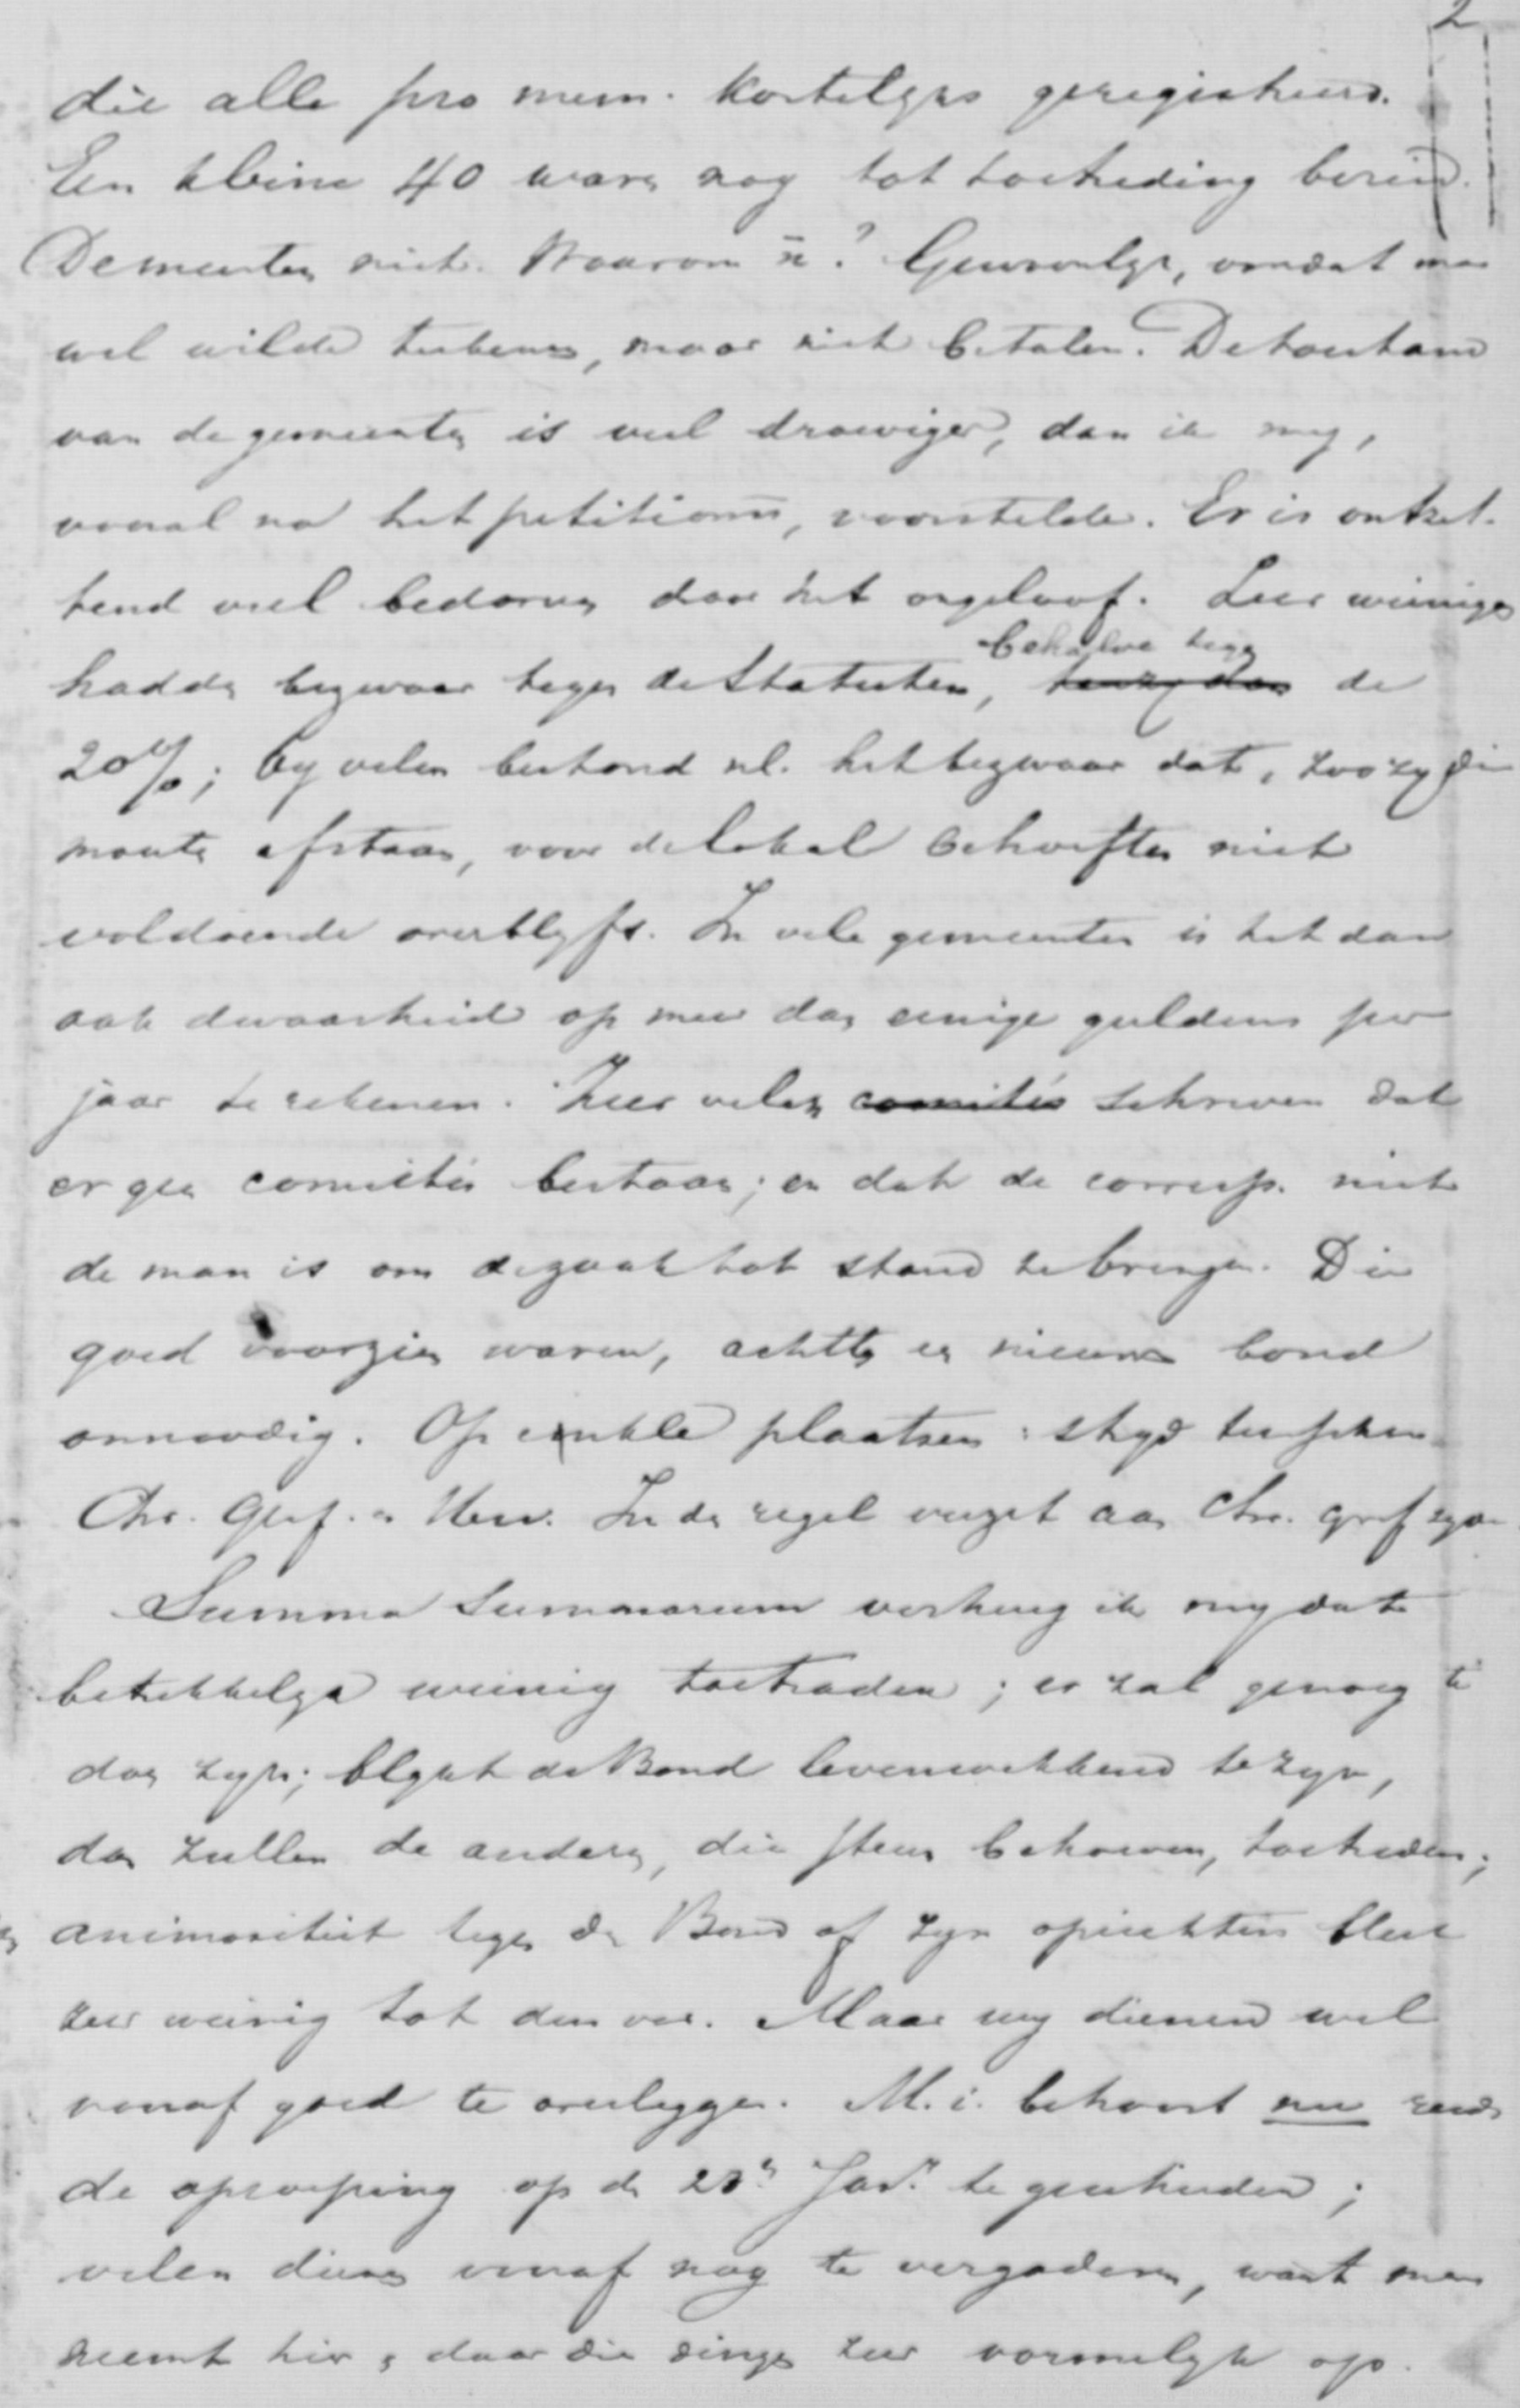 2
die alle pro mem. kortelijks geregistreerd.
Een kleine 40 waren nog tot toetreding bereid.
De meesten niet. Waarom n? Gewoonlijk, omdat men
wel wilde teekenen, maar niet betalen. De toestand
van de gemeenten is veel droeviger, dan ik mij,
vooral na het petitionn, voorstelde. Er is ontzet-
tend veel bedorven door het ongeloof. Zeer weinigen
hadden bezwaar tegen de Statuten, behalve tegen de
20%; bij velen bestond nl. het bezwaar dat, zoo zij die
moesten afstaan, voor de lokale behoeften niet
voldoende overblijft. In vele gemeenten is het dan
ook dwaasheid op meer dan eenige guldens per
jaar te rekenen. Zeer velen comités schreven dat
er geen comités bestaan; en dat de corresp. niet
de man is om de zaak tot stand te brengen. Die
goed voorzien waren, achtten een nieuwe bond
onnoodig. Op enkele plaatsen: strijd tusschen
Chr. Geref. en Herv. In den regel verzet aan Chr. Geref zijde.
Summa Summarum verheug ik mij dat
betrekkelijk weinig toetraden; er zal genoeg te
doen zijn; blijkt de Bond levenwekkend te zijn,
dan zullen de anderen, die steun behoeven, toetreden;
animositeit tegen den Bond of zijn oprichters bleek
zeer weinig tot dusver. Maar wij dienen wel
vooraf goed te overleggen. M.i. behoort nu reeds
de oproeping op den 23n Jan. te geschieden;
velen dienen vooraf nog te vergaderen, want men
neemt hier en daar die dingen zeer vormelijk op.